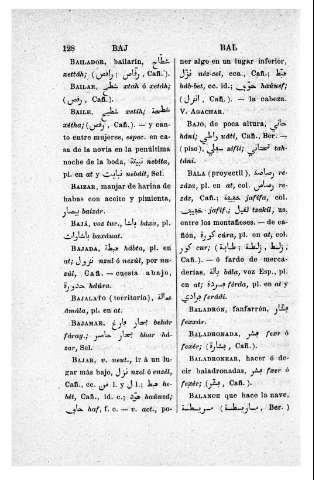 128 BAJ BAL
BAILADOR, bailarin, شطّاح
xettáh; (رقّاص ; رقاص, Cañ.).
BAILAR, شطح xtah ó xetáh;
(رقص, Cañ.).
BAILE, شطحة xetíh ó
xétha; (رقص, Cañ.). — y can-
to entre mujeres, espec. en ca-
sa de la novia en la penúltima
noche de la boda, نبيتة nebíta,
pl. en at y نبايت nebáit, Sol.
BAIZAR, manjar de harina de
habas con aceite y pimienta,
بيصار baizár.
BAJÁ, voz tur., باشا báxa, pl.
باشاوات baxáuat.
BAJADA, هبطة hábta, pl. en
at نزول nzul ó nezúl, por na-
zúl, Cañ. — cuesta abajo,
حدورة hdúra.
BAJALATO (territorio), عمالة
ămála, pl. en at.
BAJAMAR, بحار فارغ behár
fárag; بحار حاسر bhar há-
zar, Sol.
BAJAR, v. neut., ir á un lu-
gar más bajo, نزل nzel ó enzél,
Cañ., cc. من l. y ل l.; هبط he-
bét, Cañ., id. c.; هود haúued;
حاف haf, f. c. — v. act., po-
ner algo en un lugar inferior,
نزّل néz-zel, cca., Cañ.; هبّط
háb-bet, cc. id.; هوّد haúuef;
(انزل, Cañ.). — la cabeza.
V. AGACHAR.
BAJO, de poca altura, هاني
háni; واطي uáti, Cañ., Ber. —
(piso), سفلي séfli; تحتاني tah-
táni.
BALA (proyectil), رصاصة re-
záza, pl. en at, col. رصاص re-
záz, Cañ.;
entre los montañeses. — de ca-
ñón, كورة cúra, pl. en at, col.
Cañ.). — ó fardo de merca-
derías, بالة bála, voz Esp., pl.
en at فردة férda, pl. en at y
فرادي ferádi.
BALADRÓN, fanfarrón, فشّار
fexxár.
BALADRONADA, فشر fexr ó
fexér; (فشارة, Cañ.).
BALADRONEAR, hacer ó de-
cir baladronadas, فشر fxer ó
fexér; (فشر, Cañ.).
BALANCE que hace la nave,